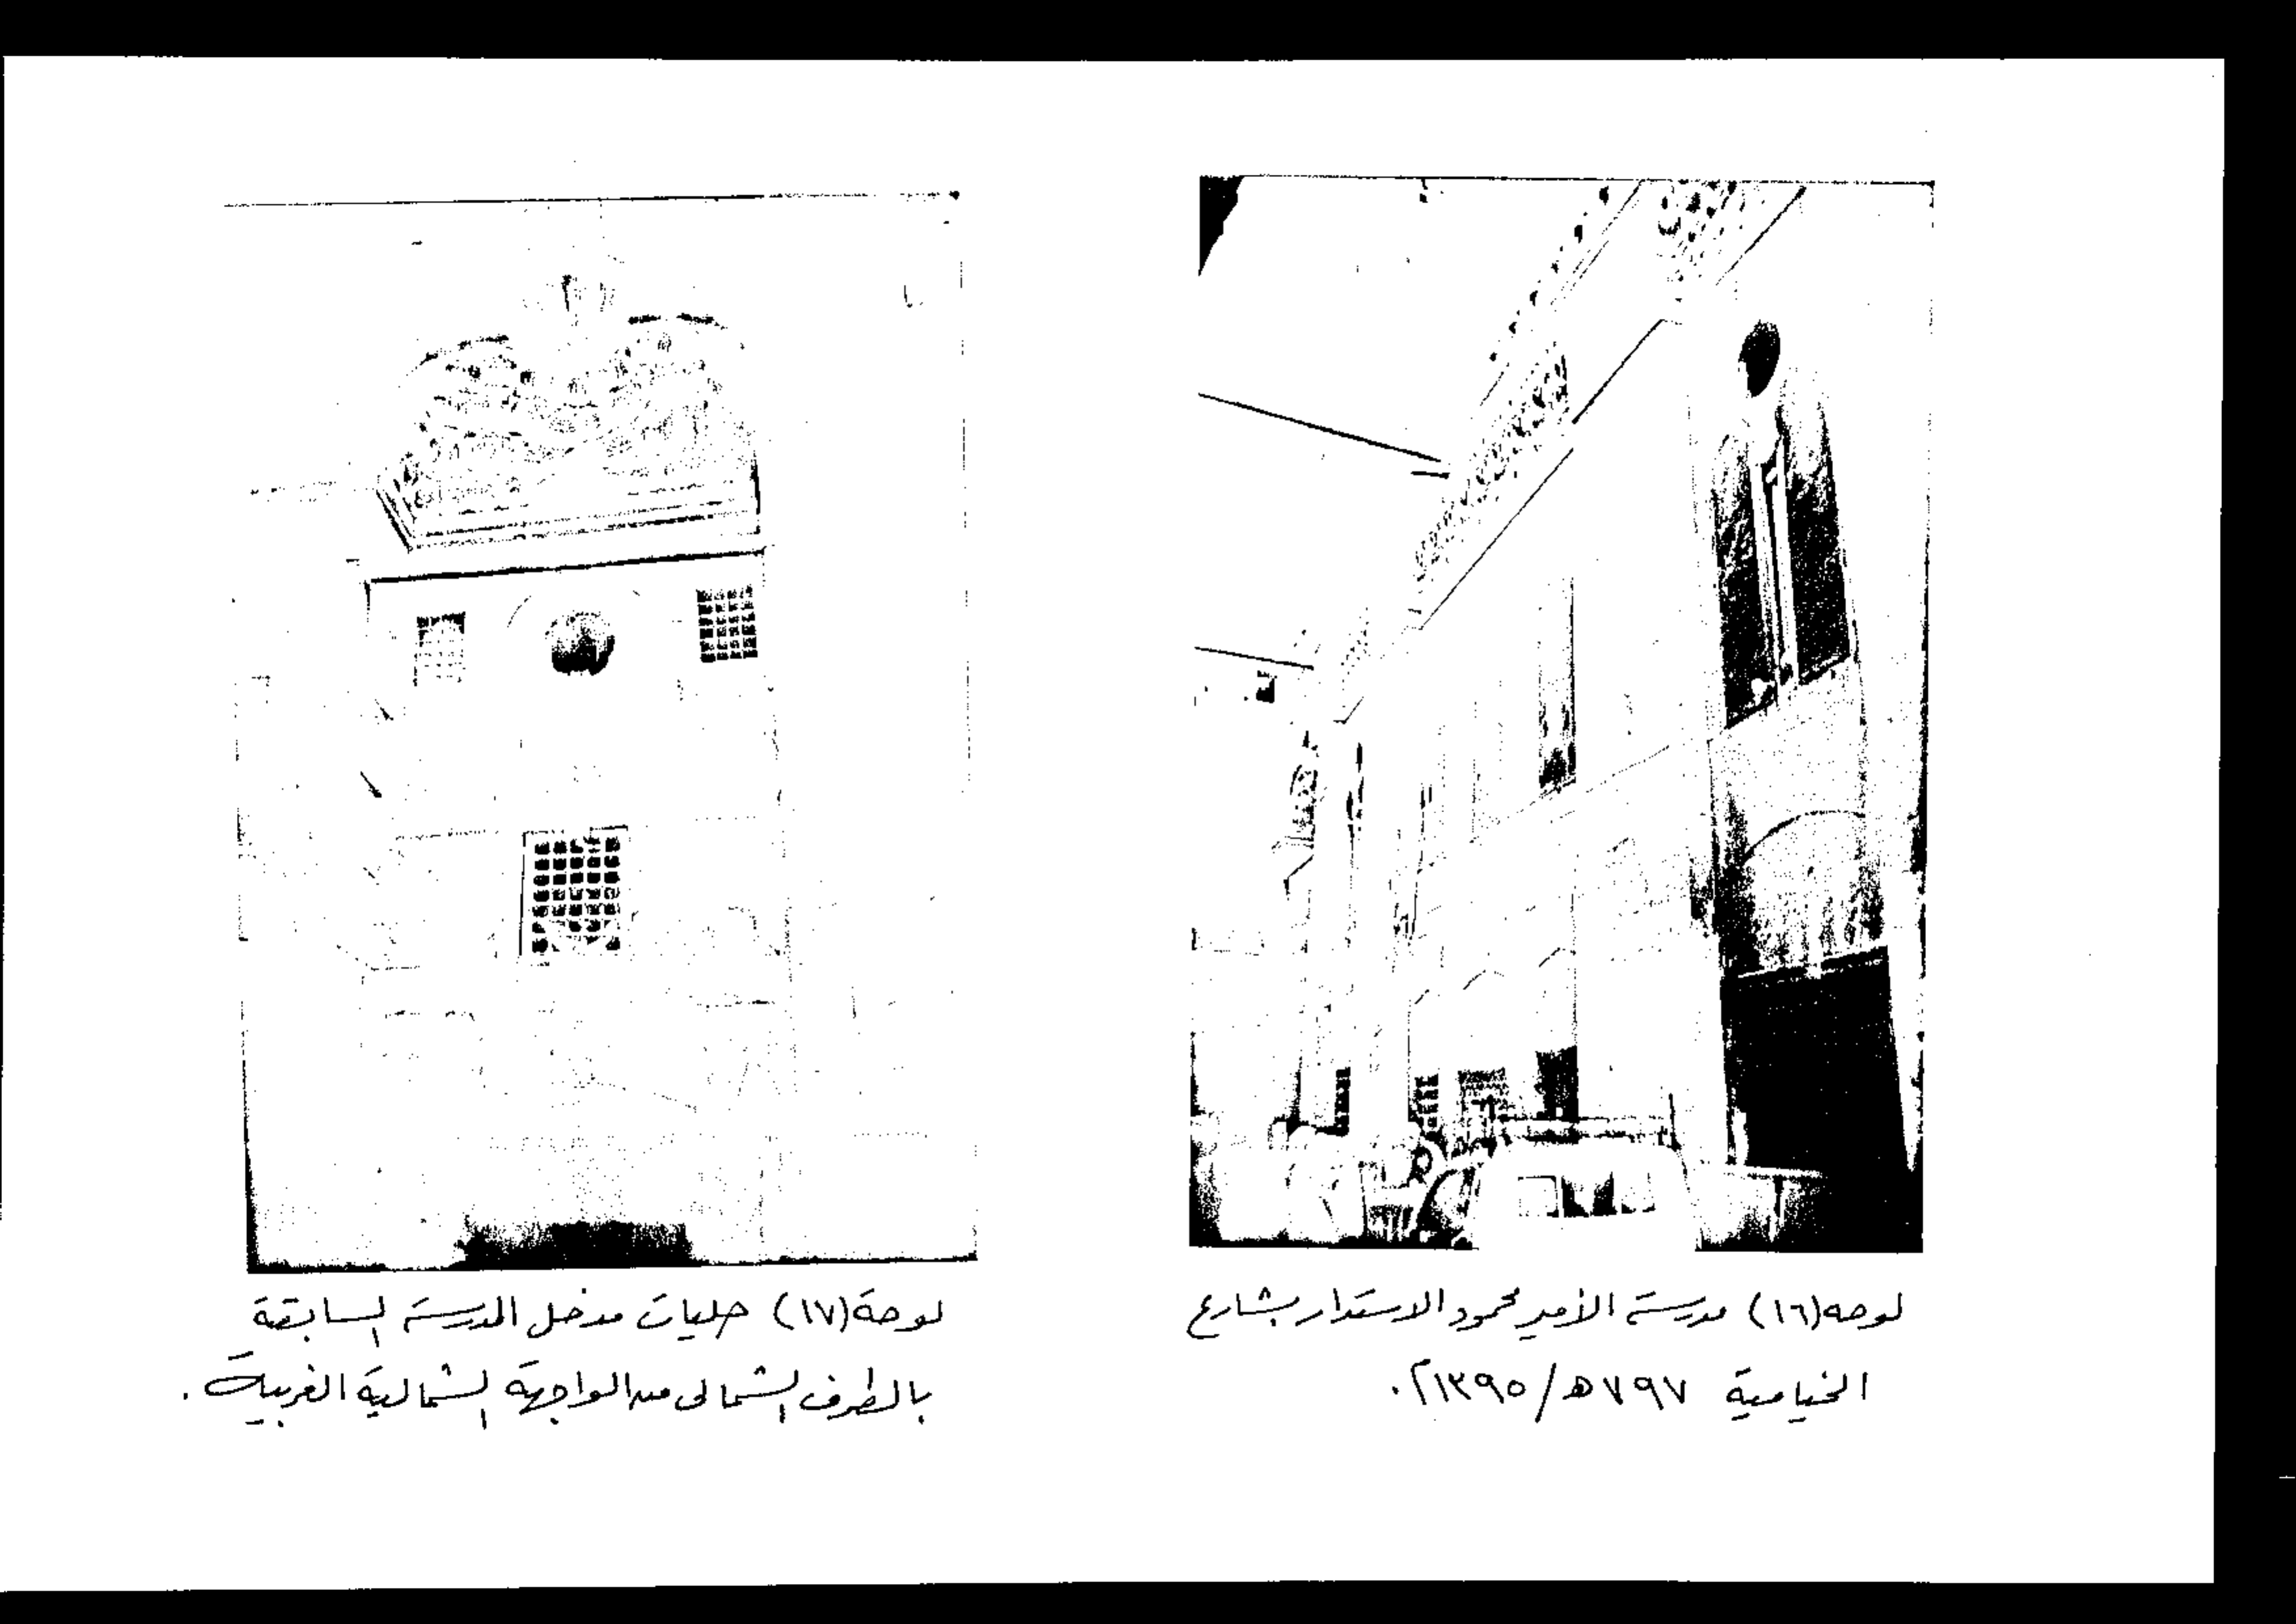 لوحه (١٦) مدرسة الأمير محمود الاستدار بشارع
الخيامية ٧٩٧ هـ / ١٣٩٥ م.
لوحة (١٧) حليات مدخل المدرسة السابقة
بالطرف الشمالى من الواجهة الشمالية الغربية .